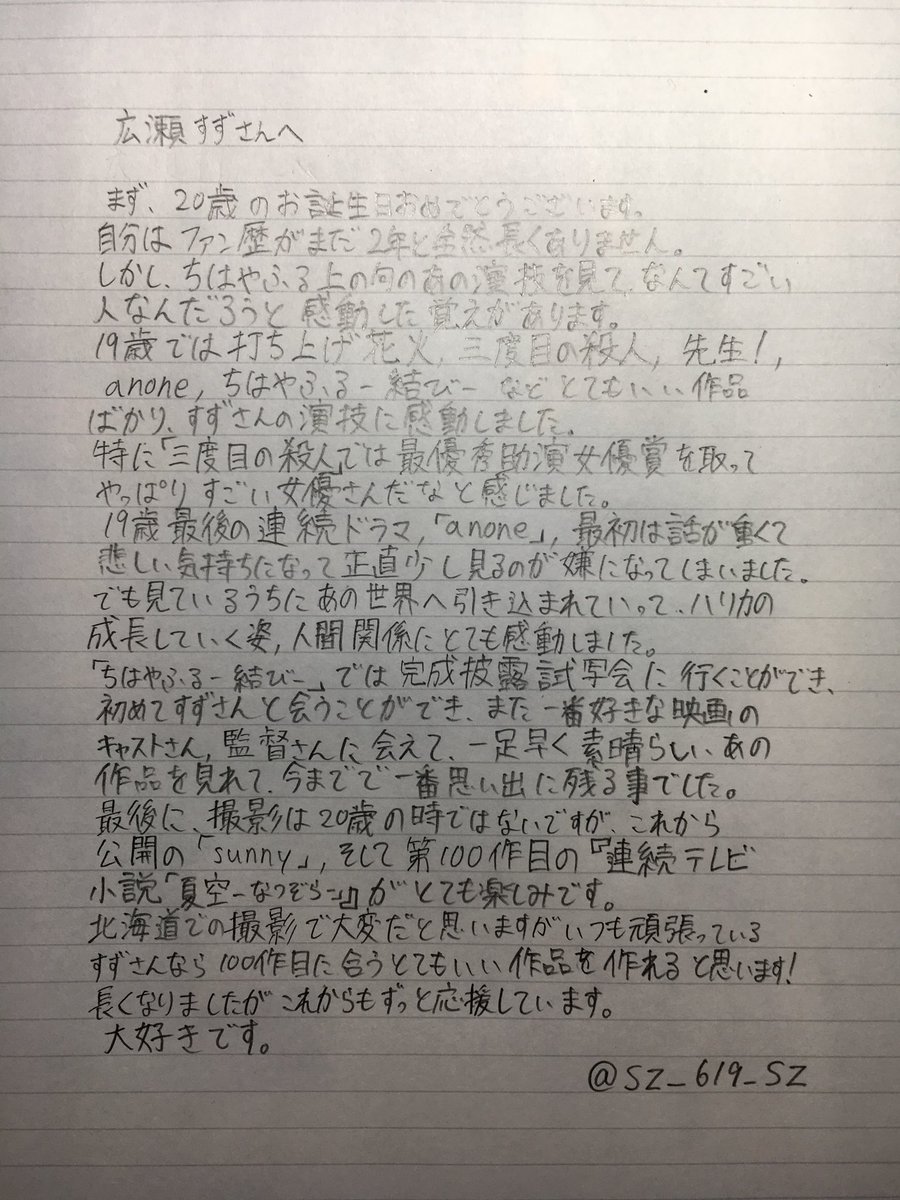 広瀬すずさんへ
まず、20歳のお誕生日おめでとうございます。
自分はファン歴がまだ2年と全然長くありません。
しかし、ちはやふる上の句のあの演技を見て、なんてすごい
人なんだろうと感動した覚えがあります。
19歳では打ち上げ花火、三度目の殺人, 先生!,
anone, ちはやふる-結び- など とてもいい作品
ばかり、すずさんの演技に感動しました。
特に「三度目の殺人」では最優秀助演女優賞を取って
やっぱりすごい女優さんだなと感じました。
19歳最後の連続ドラマ,「anone」, 最初は話が重くて
悲しい気持ちになって正直少し見るのが嫌になってしまいました。
でも見ているうちにあの世界へ引き込まれていって、ハリカの
成長していく姿, 人間関係にとても感動しました。
「ちはやふる-結び-」では完成披露試写会に行くことができ、
初めてすずさんと会うことができ、また一番好きな映画の
キャストさん, 監督さんに会えて、一足早く素晴らしいあの
作品を見れて、今までで一番思い出に残る事でした。
最後に、撮影は20歳の時ではないですが、これから
公開の「sunny」, そして第100作目の『連続テレビ
小説「夏空-なつぞら-」』がとても楽しみです。
北海道での撮影で大変だと思いますがいつも頑張っている
すずさんなら100作目に合うとてもいい作品を作れると思います!
長くなりましたがこれからもずっと応援しています。
大好きです。
@sz_619_sz